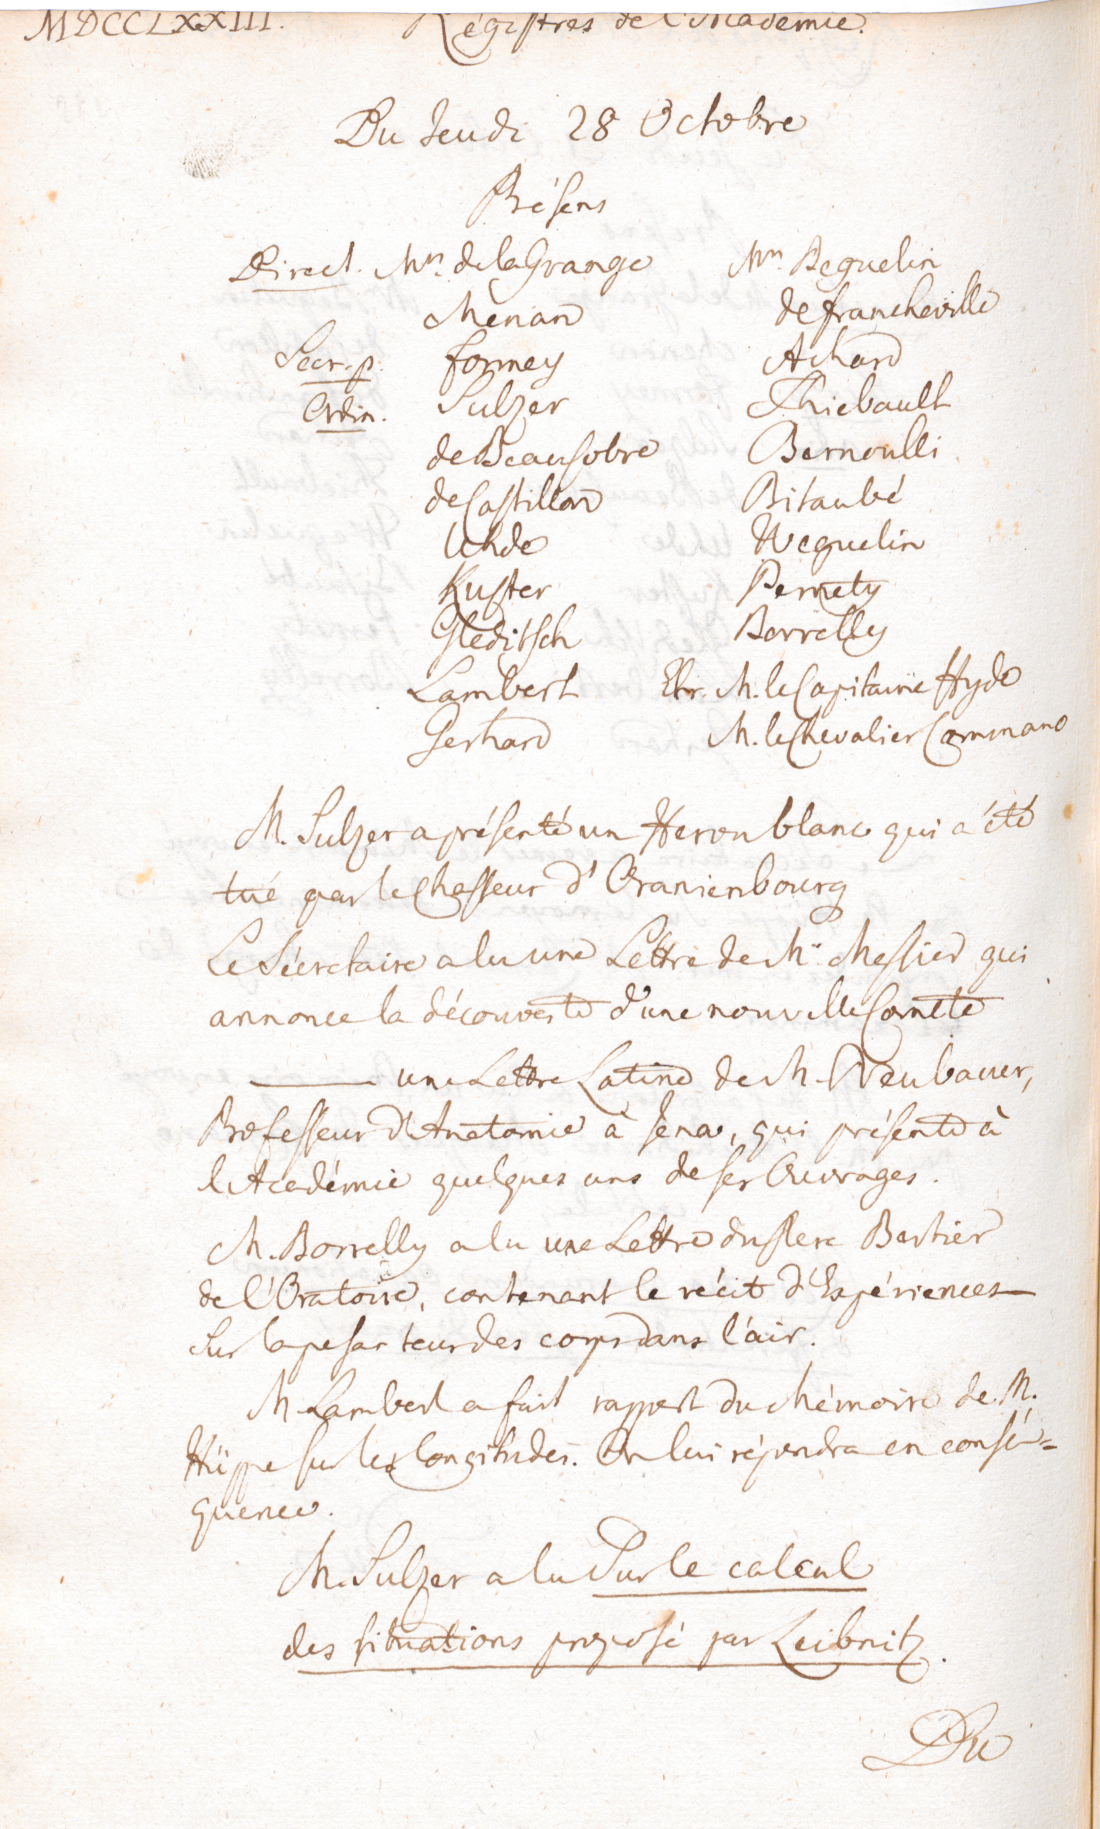 MDCCLXXIII. Régistres de l'Academie.
Du Jeudi 28 Octobre
Présens
Direct. Mrs. de la Grange Mrs. Beguelin
Merian de Francheville
Secr. p. Formey Achard
Ordin. Sulzer Thiebault
de Beausobre Bernoulli
de Castillon Bitaubé
Uhde Weguelin
Kuster Pernety
Gleditsch Borrelly
Lambert Etr. M. le Capitaine Hyde
Gerhard M. le Chevalier Commano
M. Sulzer a présenté un Heron blanc qui a été
tué par le Chasseur d'Oranienbourg
Le Sécretaire a lu une Lettre de Mr. Messier qui
annonce la découverte d'une nouvelle Comète
——— une Lettre Latine de M. Neubauer,
Professeur d'Anatomie à Jena, qui présente à
l'Académie quelques uns de ses Ouvrages.
M. Borrelly a lu une Lettre du Pere Bertier
de l'Oratoire, contenant le récit d'Expériences
sur la pesanteur des corps dans l'air.
M. Lambert a fait rapport du Mémoire de M.
Hüppe sur les Longitudes. On lui répondra en consé=
quence.
M. Sulzer a lu Sur le calcul
des situations proposé par Leibnitz.
Du